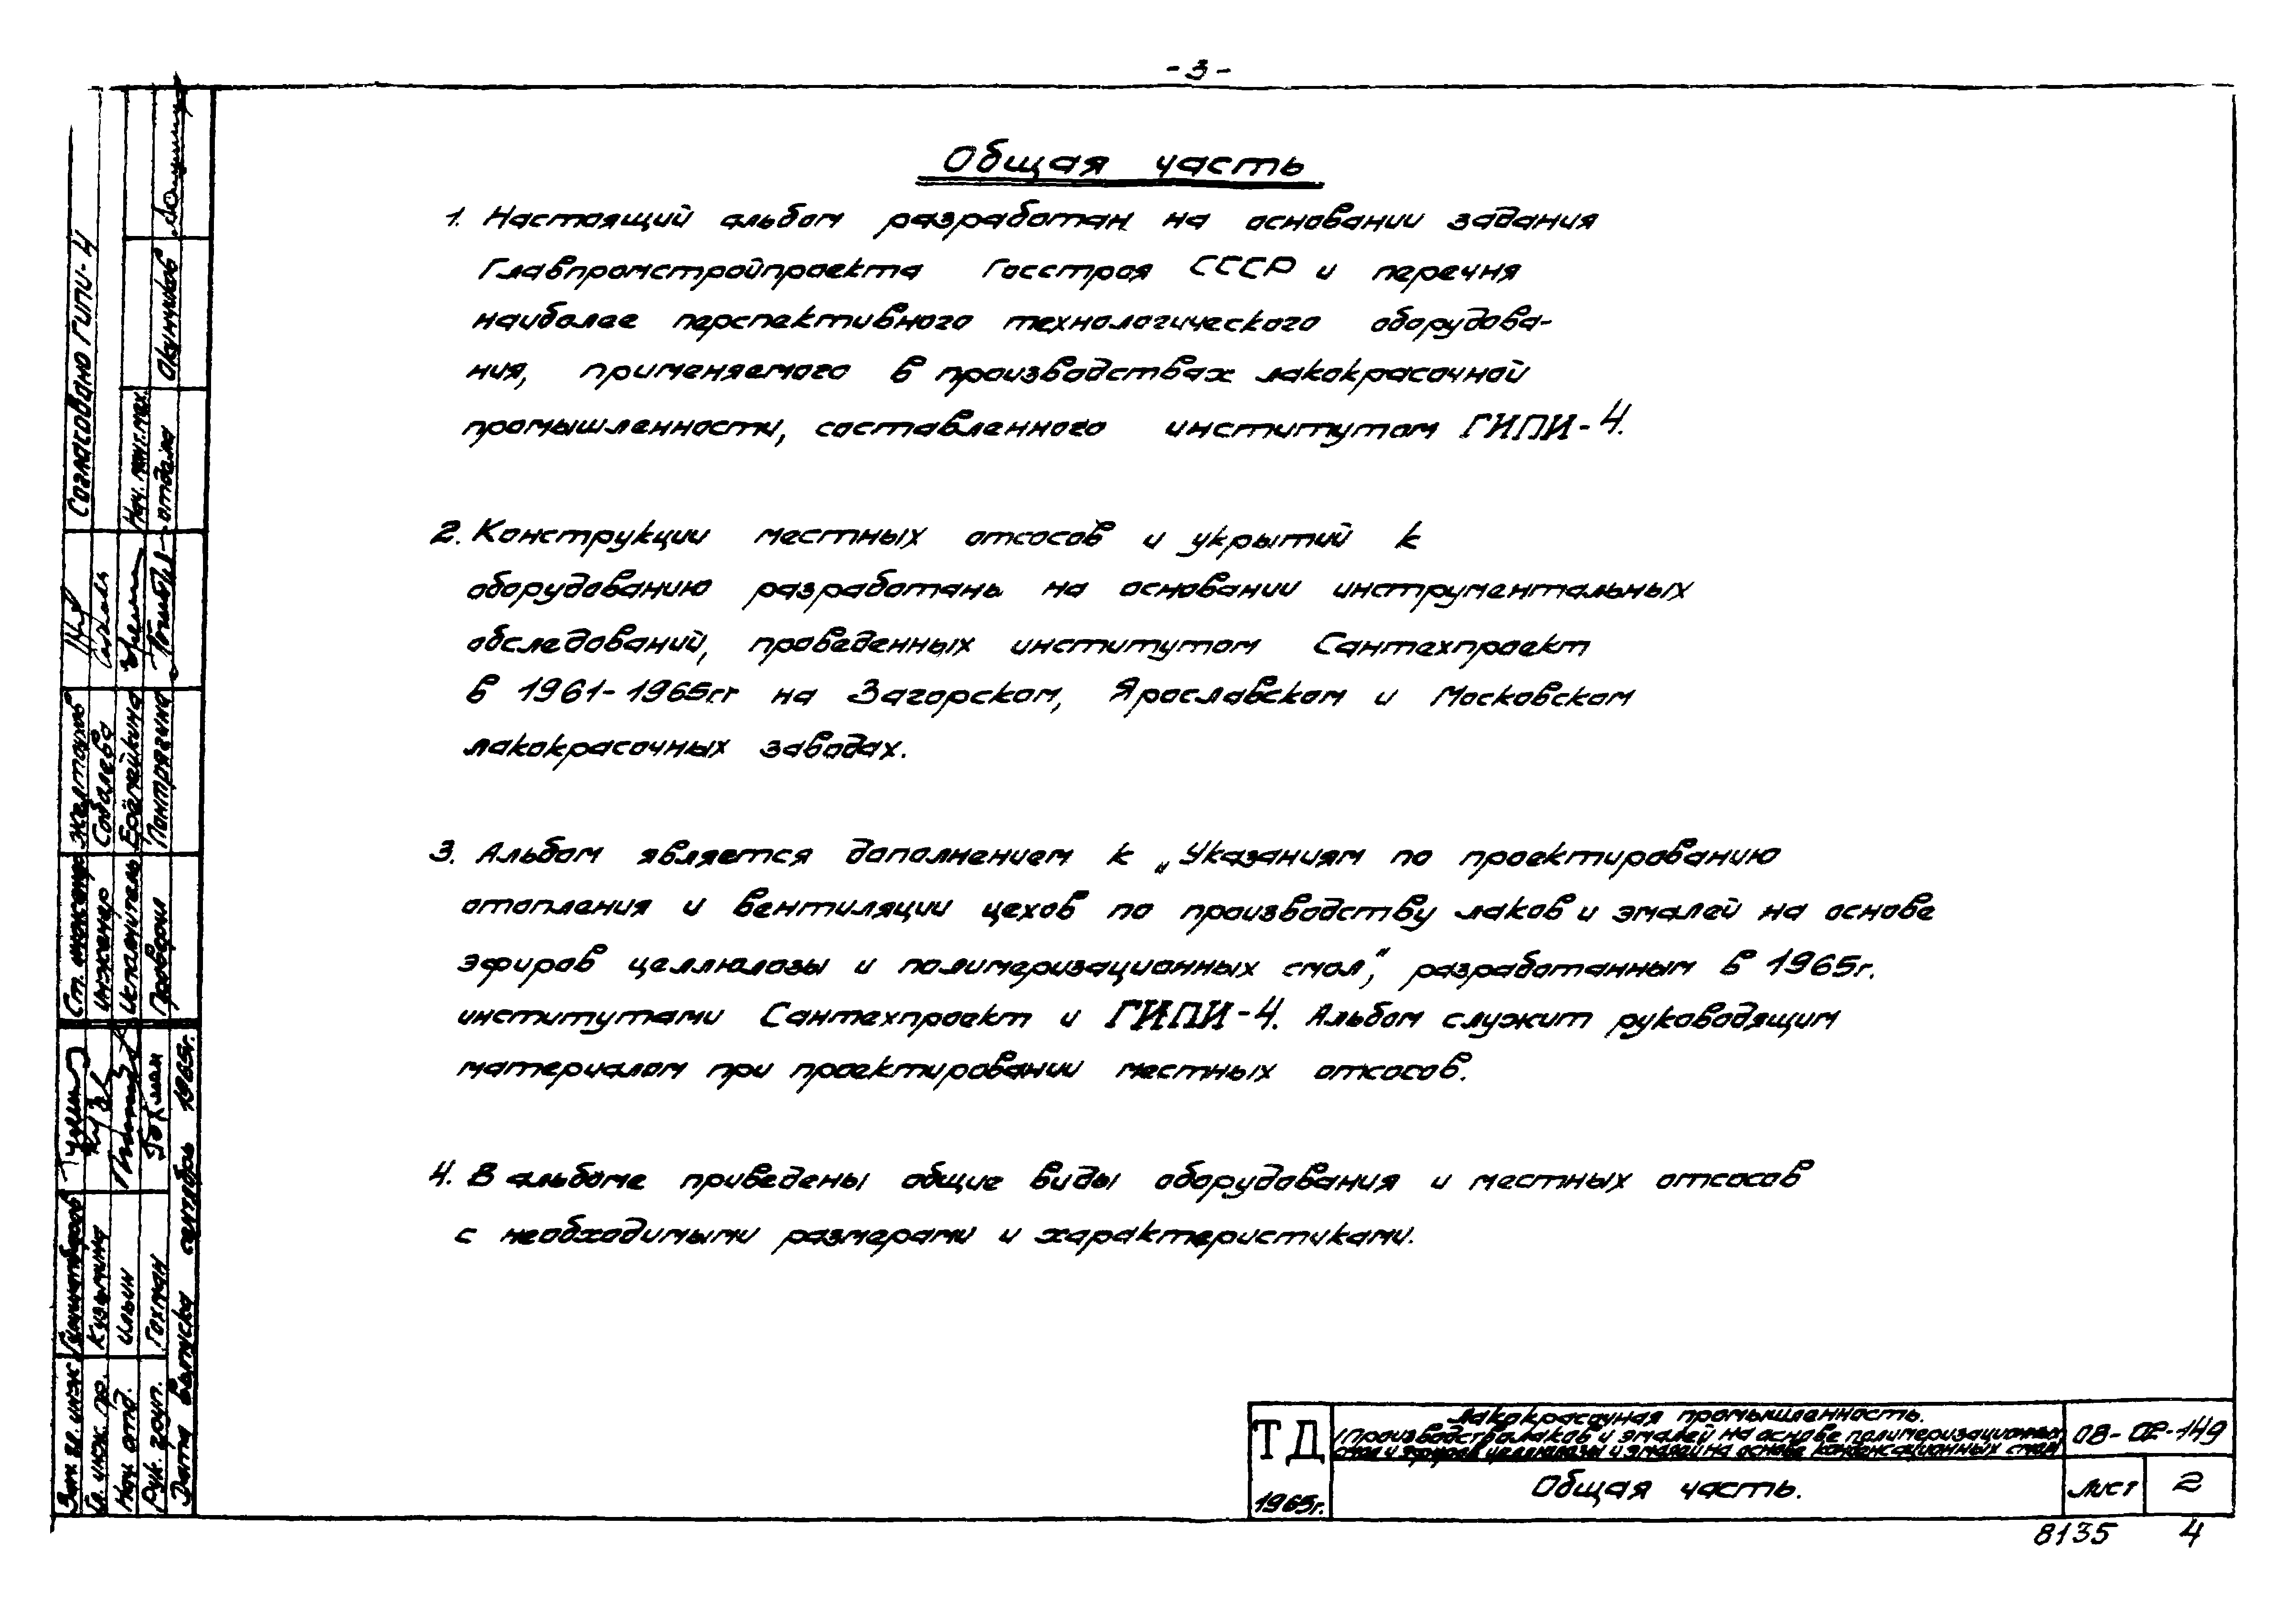 - 3 -
Общая часть
1. Настоящий альбом разработан на основании задания
Главпромстройпроекта Госстроя СССР и перечня
наиболее перспективного технологического оборудова-
ния, применяемого в производствах лакокрасочной
промышленности, составленного институтом ГИПИ-4.
2. Конструкции местных отсосов и укрытий к
оборудованию разработаны на основании инструментальных
обследований, проведенных институтом Сантехпроект
в 1961-1965г.г на Загорском, Ярославском и Московском
лакокрасочных заводах.
3. Альбом является дополнением к „Указаниям по проектированию
отопления и вентиляции цехов по производству лаков и эмалей на основе
эфиров целлюлозы и полимеризационных смол", разработанным в 1965г.
институтами Сантехпроект и ГИПИ-4. Альбом служит руководящим
материалом при проектировании местных отсосов.
4. В альбоме приведены общие виды оборудования и местных отсосов
с необходимыми размерами и характеристиками.
Согласовано ГИПИ-4
Нач. отдела
Окунчиков
Ст. инженер Желтоухов
инженер Соболева
Исполнитель Ерёмейкина
Проверил Понтрягина
Зам. гл. инж
Гл. инж. пр. Кузьмина
Нач отд. Ильин
Рук. групп. Гохман
Дата выпуска сентябрь 1965г.
ТД
1965г.
Лакокрасочная промышленность.
(Производства лаков и эмалей на основе полимеризационных
смол и эфиров целлюлозы и эмалей на основе конденсационных смол)
08-02-149
Общая часть.
Лист 2
8135 4